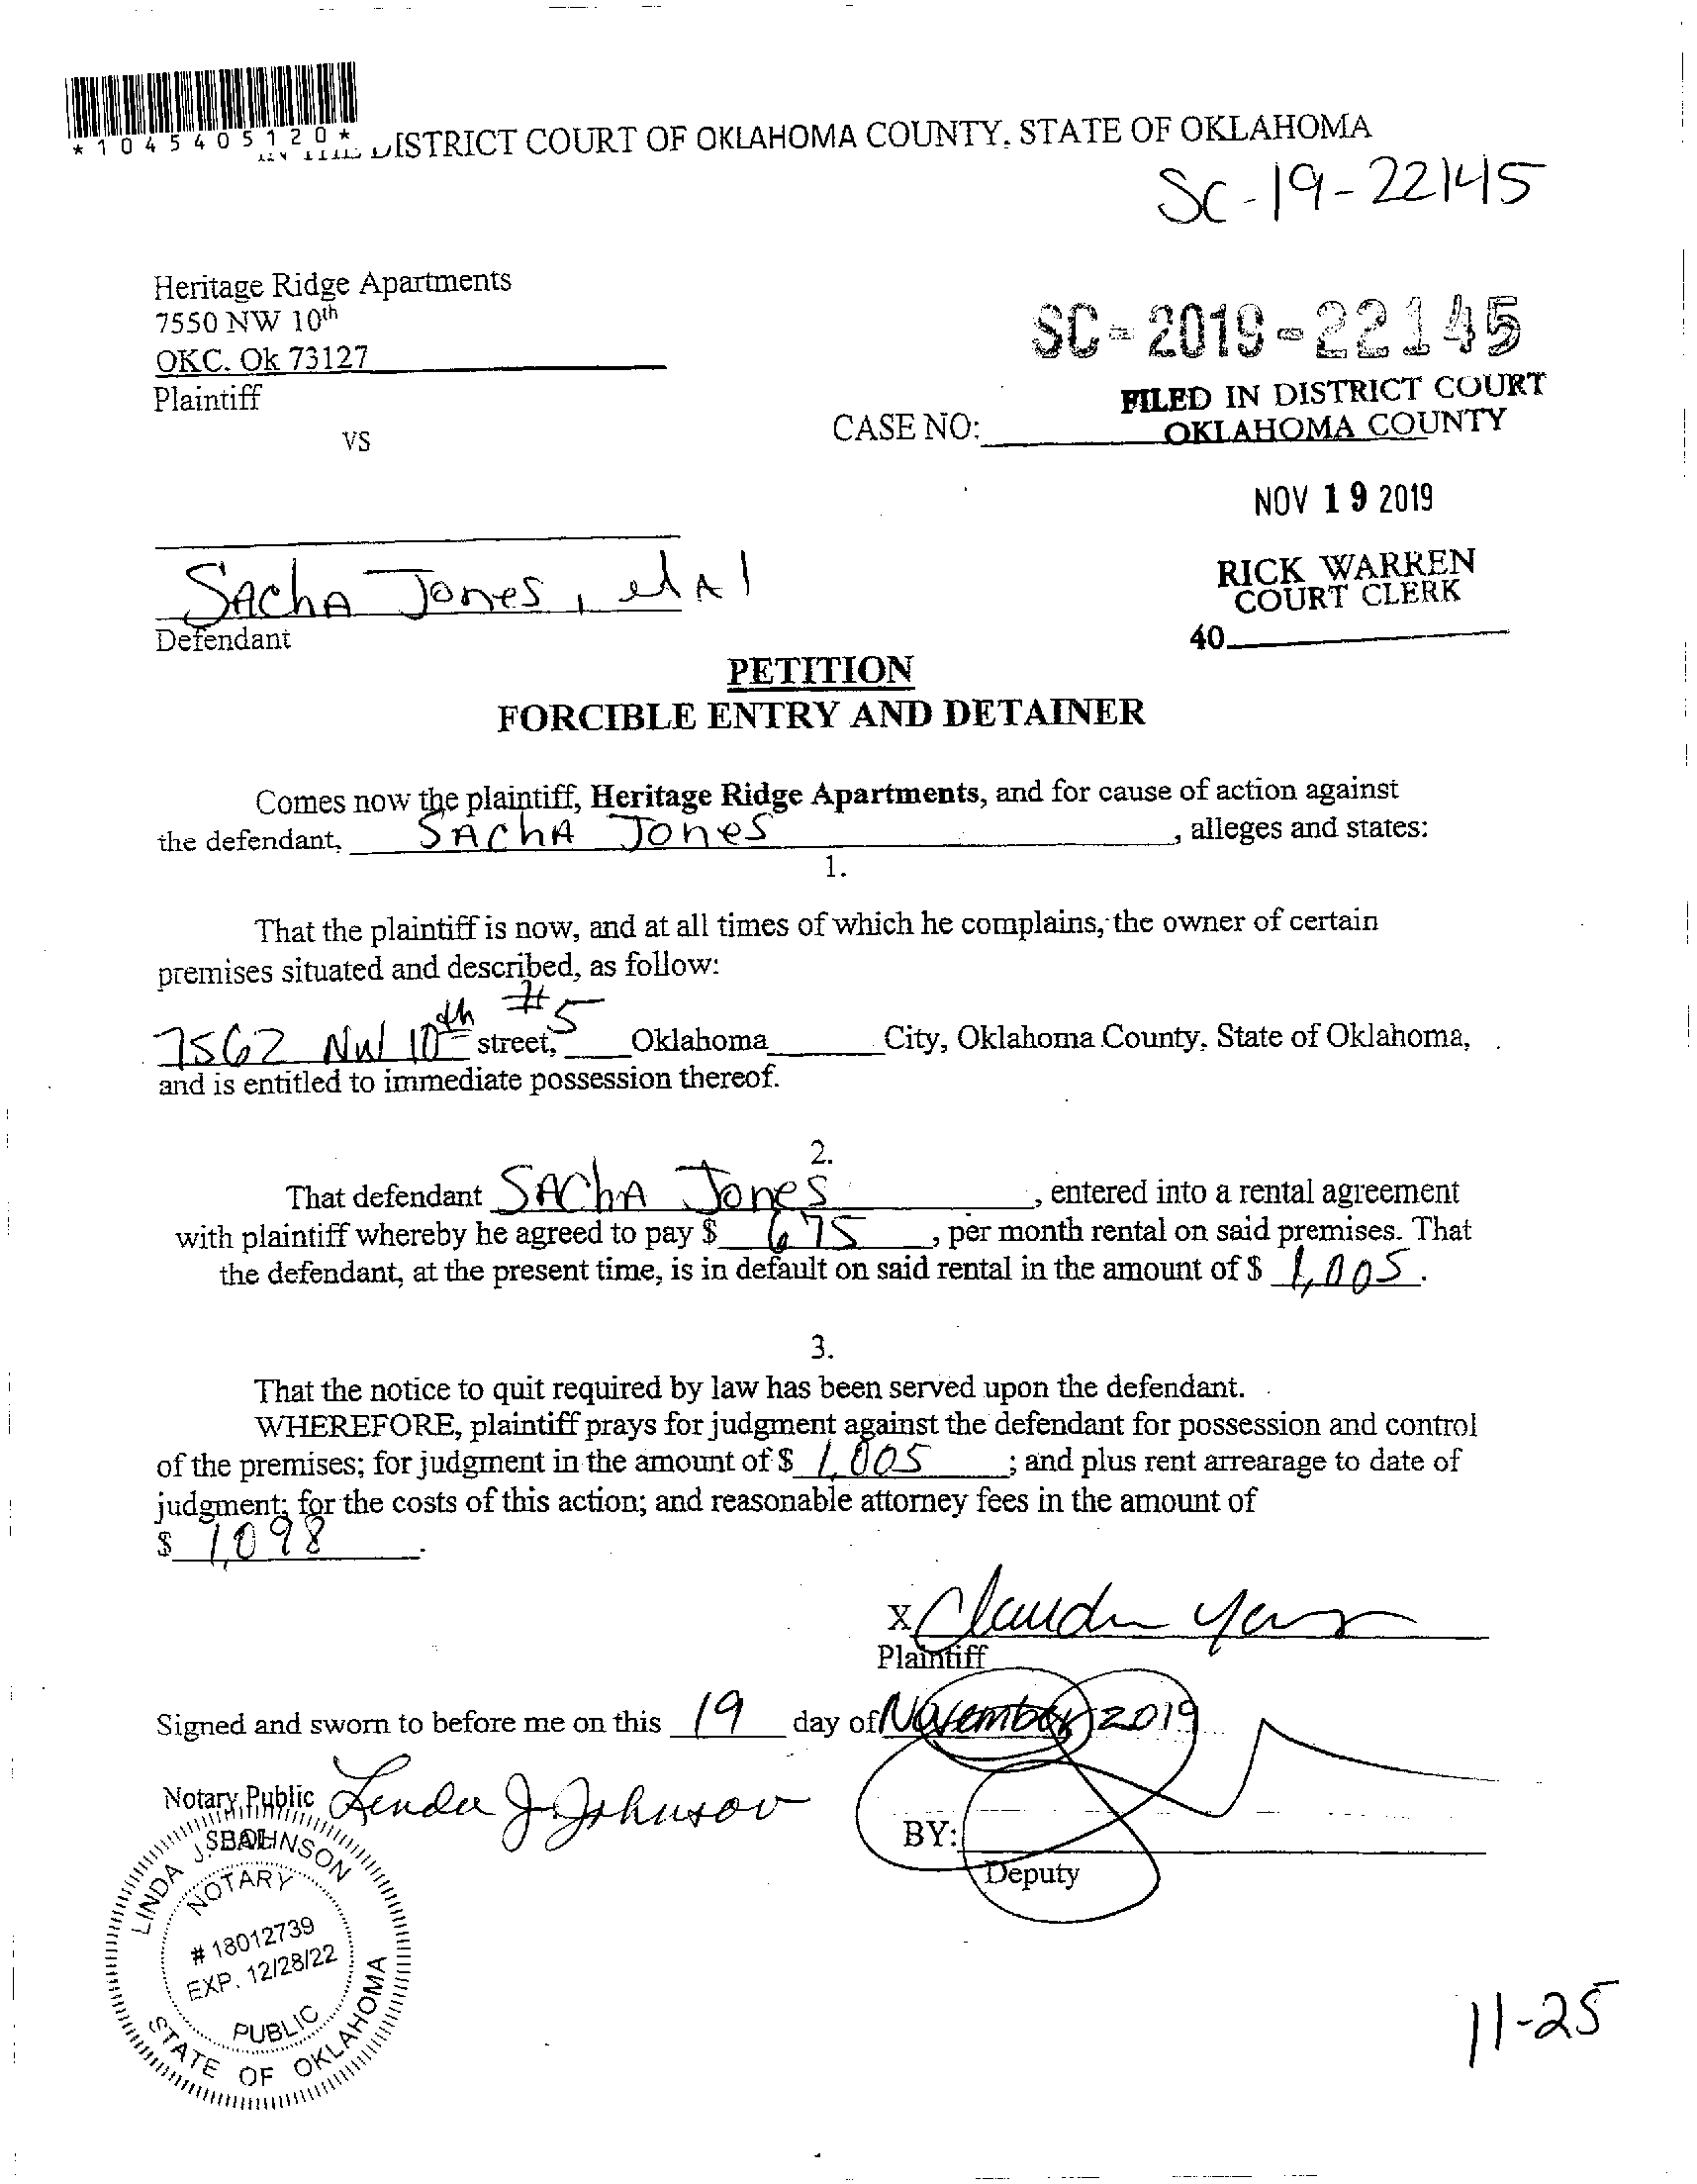 *1045405120*
DISTRICT COURT OF OKLAHOMA COUNTY, STATE OF OKLAHOMA
SC-19-22145
Heritage Ridge Apartments
7550 NW 10th
OKC. Ok 73127
Plaintiff
VS
SC-2019-22145
FILED IN DISTRICT COURT
OKLAHOMA COUNTY
CASE NO:
NOV 19 2019
RICK WARREN
COURT CLERK
40
SAchA Jones, et Al
Defendant
PETITION
FORCIBLE ENTRY AND DETAINER
Comes now the plaintiff, Heritage Ridge Apartments, and for cause of action against
the defendant, SAchA Jones, alleges and states:
1.
That the plaintiff is now, and at all times of which he complains, the owner of certain
premises situated and described, as follow:
7562 NW 10th street, #5 Oklahoma City, Oklahoma County, State of Oklahoma,
and is entitled to immediate possession thereof.
2.
That defendant SAChA Jones, entered into a rental agreement
with plaintiff whereby he agreed to pay $ 675, per month rental on said premises. That
the defendant, at the present time, is in default on said rental in the amount of $ 1,005.
3.
That the notice to quit required by law has been served upon the defendant.
WHEREFORE, plaintiff prays for judgment against the defendant for possession and control
of the premises; for judgment in the amount of $ 1,005; and plus rent arrearage to date of
judgment; for the costs of this action; and reasonable attorney fees in the amount of
$ 1,098.
X Claudia
Plaintiff
Signed and sworn to before me on this 19 day of November 2019
Notary Public Linda J Johnson
BY:
Deputy
LINDA J. JOHNSON
NOTARY
# 18012739
EXP. 12/28/22
PUBLIC
STATE OF OKLAHOMA
11-25